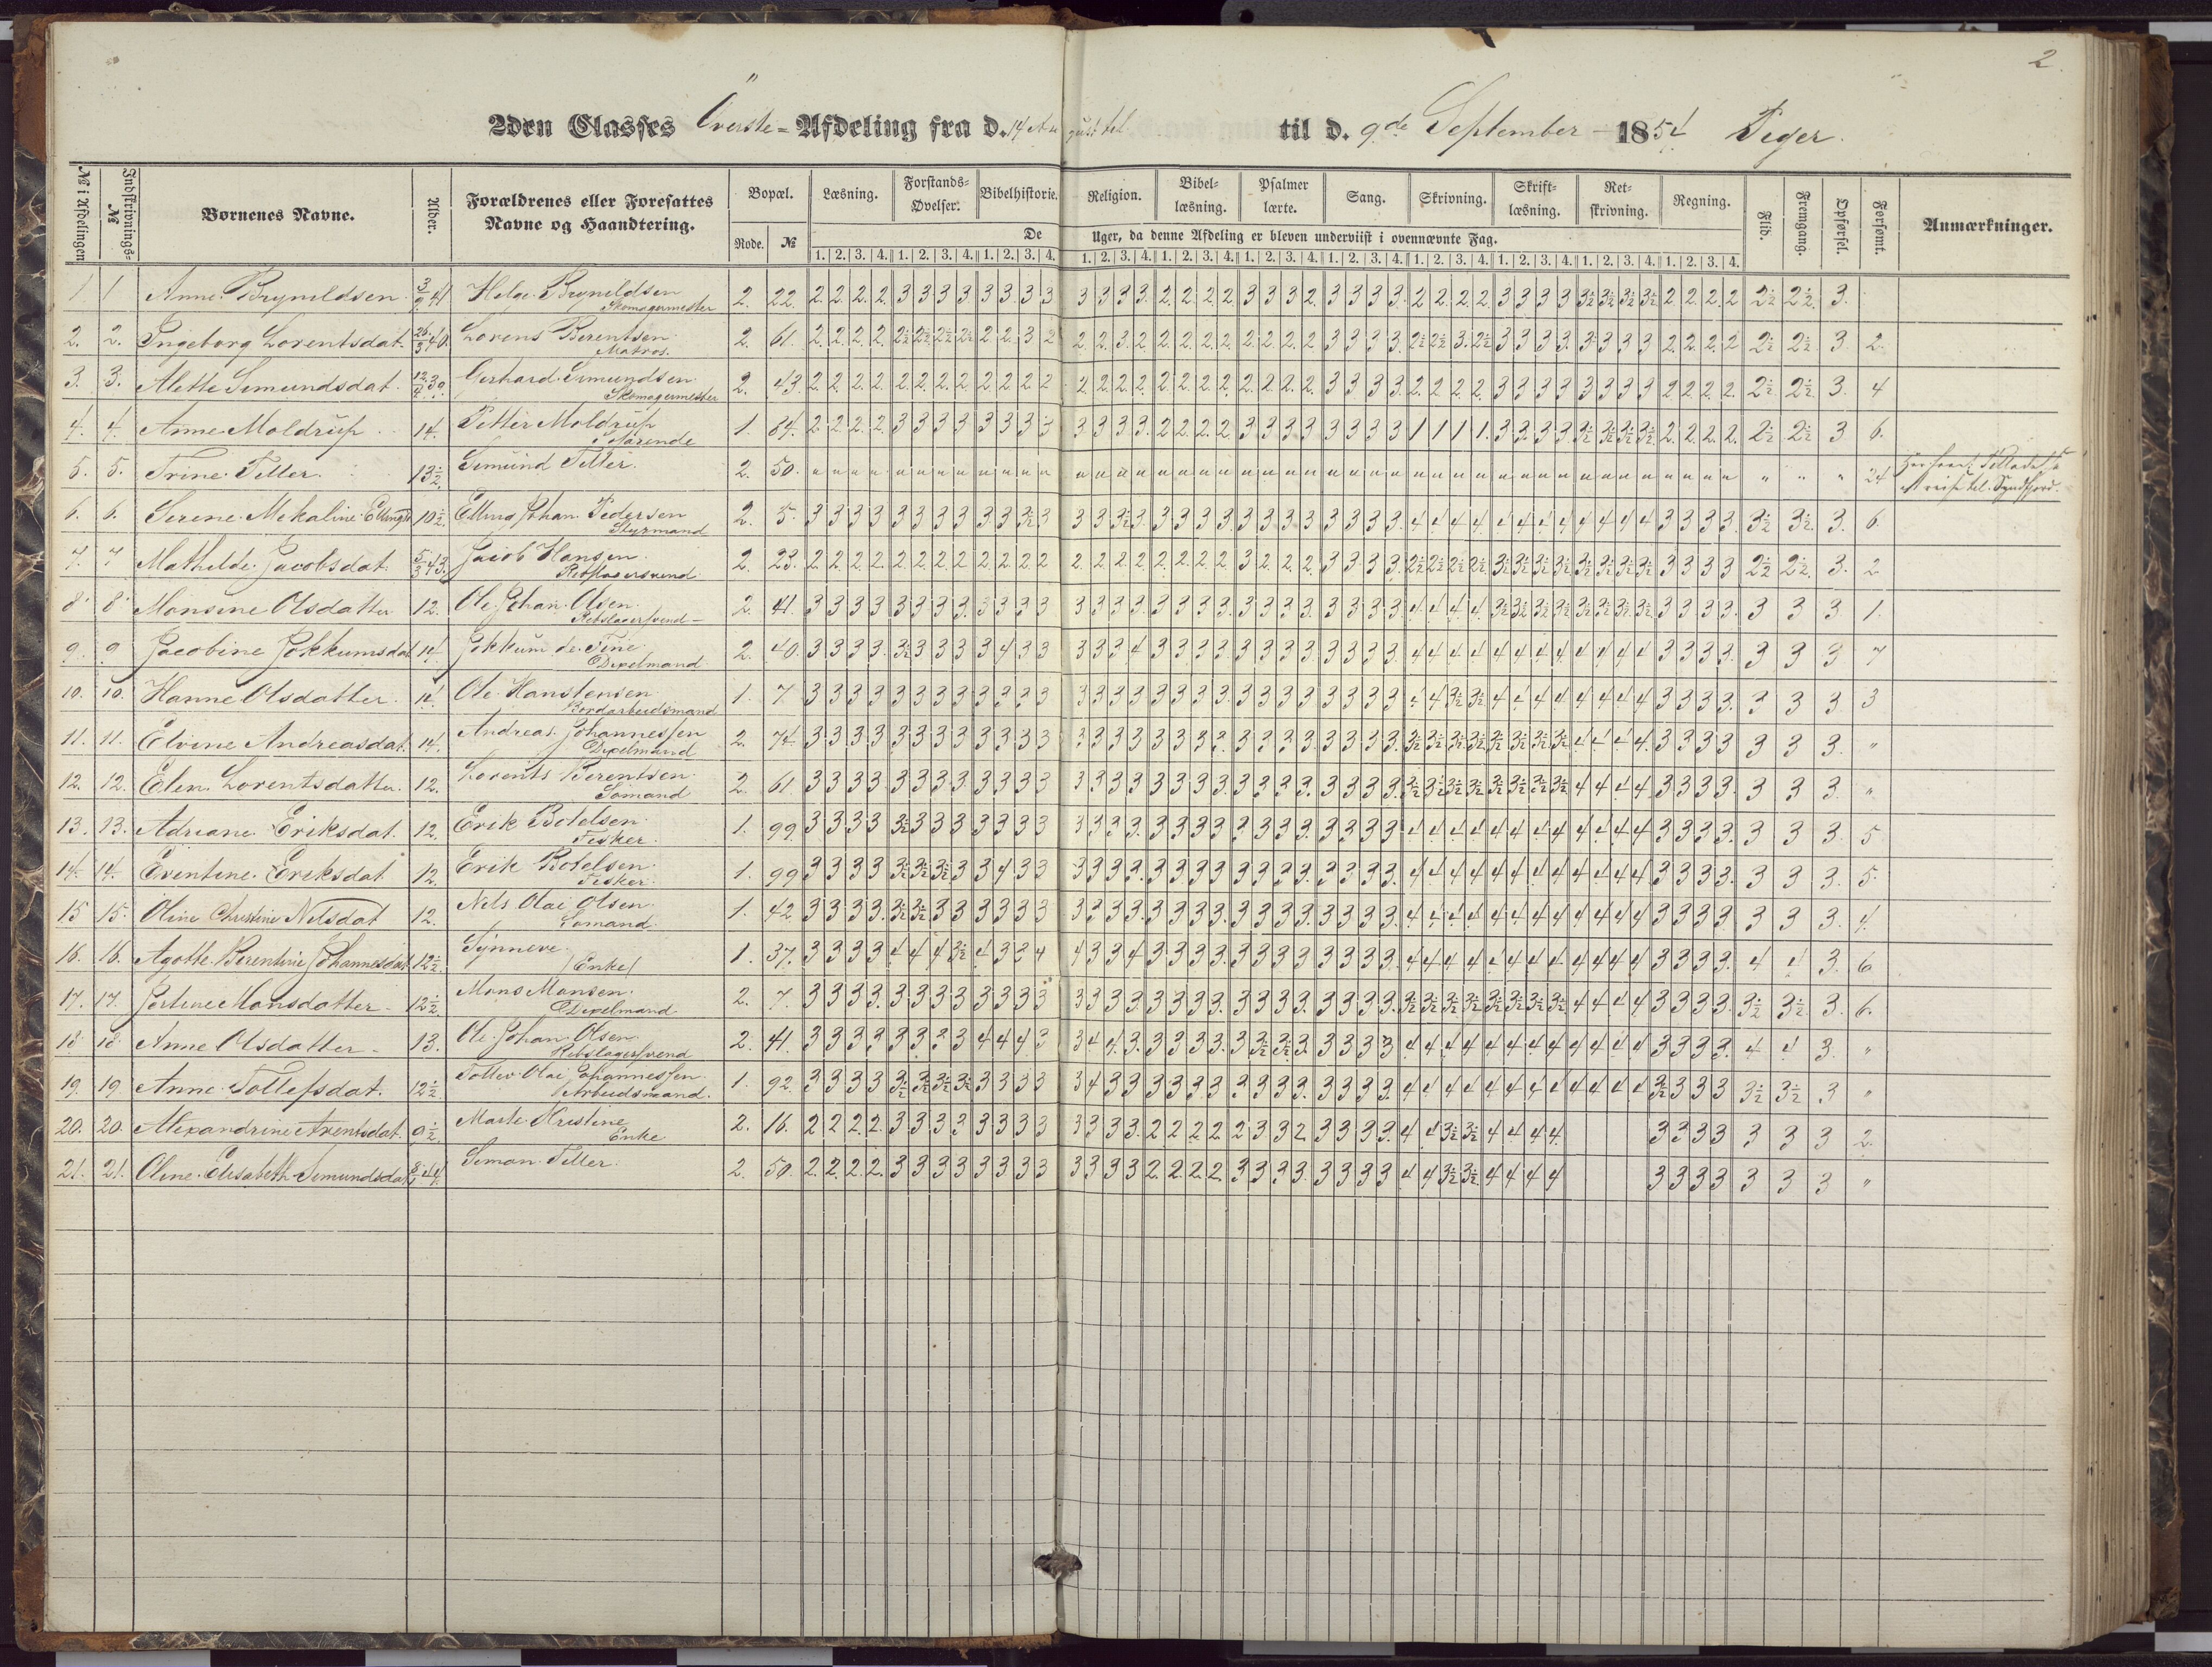 2
2den Classes Överste = Afdeling fra d. 14 August til til d. 9de September 1854 Piger.
No i Afdelingen Indskrivnings-No Børnenes Navne. Alder. Forældrenes eller Foresattes Navne og Haandtering. Bopæl. Læsning. Forstands-Øvelser. Bibelhistorie. Religion. Bibel-læsning. Psalmer lærte. Sang. Skrivning. Skrift-læsning. Ret-skrivning. Regning. Flid. Fremgang. Opførsel. Forsømt. Anmærkninger.
Rode. No De Uger, da denne Afdeling er bleven underviist i ovennævnte Fag.
1. 2. 3. 4. 1. 2. 3. 4. 1. 2. 3. 4. 1. 2. 3. 4. 1. 2. 3. 4. 1. 2. 3. 4. 1. 2. 3. 4. 1. 2. 3. 4. 1. 2. 3. 4. 1. 2. 3. 4. 1. 2. 3. 4.
1. 1 Anne Bryneldsen 3/9 41 Helge Bryneldsen Skomagermester 2. 22. 2. 2. 2. 2. 3 3 3 3 3 3 3 3 3 3 3 3 2. 2. 2. 2 3 3 3 2 3 3 3 3. 2. 2. 2. 2 3 3 3 3 3½ 3½ 3½ 3½ 2. 2. 2. 2 2½ 2½ 3.
2. 2. Ingeborg Lorentsdat. 26/3 40. Lorens Berentsen Matros. 2. 61. 2. 2. 2. 2. 2½ 2½ 2½ 2½ 2 2. 3 2 2 2 3 2 2. 2. 2. 2 2. 2. 2. 2 3 3 3 3. 2½ 2½ 3. 2½ 3 3 3 3. 3 3 3 3 2. 2. 2. 2 2½ 2½ 3 2.
3. 3. Alette Simundsdat. Gerhard Simundsen Skomagermester 2. 43. 2. 2. 2. 2. 2. 2. 2. 2 2 2 2 2. 2. 2. 2. 2 2. 2. 2. 2. 2. 2. 2. 2 3 3 3 3. 2. 2. 2. 2 3 3 3 3 3 3 3 3 2 2 2 2. 2½ 2½ 3. 4
4. 4. Anne Moldrup 14. Petter Moldrup Tofarende 1. 64. 2. 2. 2. 2. 3 3 3 3 3 3 3 3 3 3 3 3. 2. 2. 2. 2. 3 3 3 3 3 3 3 3 1 1 1 1. 3 3. 3. 3. 3½ 3½ 3½ 3½ 2. 2. 2. 2. 2½ 2½ 3 6.
5. 5. Trine Teller. 13½ Simund Teller. 2. 50. " " " " " " " " " " " " " " " " " " " " " " " " " " " " " " " " " " " " " " " " " " " " " " " 24
6. 6. Serene Mekaline Ellingsd 10½ Elling Johan Pedersen Styrmand 2. 5. 3 3 3 3 3 3 3 3 3 3 3½ 3 3 3 3½ 3 3 3 3 3 3 3 3 3 3 3 3 3. 4 4 4 4. 4 4 4 4 4 4 4 4 3 3 3 3. 3½ 3½ 3. 6.
7. 7 Mathilde Jacobsdat. 5/3 43. Jacob Hansen Rebslagersvend 2. 23. 2. 2. 2. 2. 2. 2. 2. 2. 2. 2. 2 2 2. 2. 2 2 2. 2. 2. 2. 3 2. 2. 2. 3 3 3 3. 2½ 2½ 2½ 2½ 3½ 3½ 3½ 3½ 3½ 3½ 3½ 3½ 3 3 3 3 2½ 2½ 3. 2
8 8 Monsine Olsdatter 12. Ole Johan Olsen. Rebslagersvend - 2. 41. 3 3 3 3 3 3 3 3. 3 3 3 3 3 3 3 3. 3 3 3 3. 3 3 3 3. 3 3 3 3. 4. 4 4. 4. 3½ 3½ 3½ 3½ 3½ 3½ 3½ 3½ 3 3 3 3. 3 3 3 1.
9. 9 Jacobine Jokkumsdat 14. Jokkum de Fine Dexelmand 2. 40. 3 3 3 3. 3½ 3 3 3 3 4 3 3 3 3 3 4 3 3 3 3. 3 3 3 3. 3 3 3 3. 4 4 4 4 4 4 4 4 4 4 4 4 3 3 3 3. 3 3 3 7
10. 10. Hanne Olsdatter. Ole Hanstensen Bordarbeidsmand 1. 7 3 3 3 3 3 3 3 3 3 3 3 3 3 3 3 3 3 3 3 3. 3 3 3 3 3 3 3 3 4 4 3½ 3½ 4 4 4 4 4 4 4 4 3 3 3 3. 3 3 3 3
11. 11. Elvine Andreasdat. 14. Andreas Johannessen Dexelmand 2. 74. 3 3 3 3 3 3 3 3 3 3 3 3 3 3 3 3 3 3 3 3. 3 3 3 3. 3 3 3 3. 3½ 3½ 3½ 3½ 3½ 3½ 3½ 3½ 4 4 4 4. 3 3 3 3 3 3 3. "
12. 12. Elen Lorentsdatter. 12. Lorents Berentsen Sömand 2. 61. 3 3 3 3 3 3 3 3 3 3 3 3 3 3 3 3 3 3 3 3. 3 3 3 3. 3 3 3 3. 3½ 3½ 3½ 3½ 3½ 3½ 3½ 3½ 4 4 4 4. 3 3 3 3. 3 3 3. "
13. 13. Adriane Eriksdat. 12. Erik Botelsen Fisker. 1. 99. 3 3 3 3 3½ 3 3 3 3 3 3 3 3 3 3 3. 3 3 3 3 3 3 3 3. 3 3 3 3 4 4 4 4 4 4 4 4 4 4 4 4 3 3 3 3. 3 3 3. 5
14. 14. Eventine Eriksdat 12. Erik Botelsen Fisker. 1. 99 3 3 3 3 3½ 3½ 3½ 3 3 4 3 3 3 3 3 3. 3 3 3 3 3 3 3 3. 3 3 3 3. 4 4 4 4 4 4 4 4 4 4 4 4. 3 3 3 3. 3 3 3. 5.
15 15. Oline Christine Nilsdat 12. Nels Olai Olsen. Sömand 1. 42 3 3 3 3. 3½ 3½ 3 3 3 3 3 3 3 3 3 3. 3 3 3 3. 3 3 3 3. 3 3 3 3. 4 4 4 4 4 4 4 4 4 4 4 4 3 3 3 3. 3 3 3. 4.
16. 16. Agothe Berentine Johannesdat 12½ Synneve /Enke/ 1. 37. 3 3 3 3 4 4 4 3½ 4 3 3 4 4 3 3 4 3 3 3 3. 3 3 3 3. 3 3 3 3. 4 4 4 4 4 4 4 4 4 4 4 4 3 3 3 3. 4 4 3. 6
17. 17. Jortine Monsdatter - 12½ Mons Monsen. Dexelmand 2. 7. 3 3 3 3. 3 3 3 3 3 3 3 3 3 3 3 3 3 3 3 3. 3 3 3 3 3 3 3 3. 3½ 3½ 3½ 3½ 3½ 3½ 3½ 3½ 4 4 4 4 3 3 3 3. 3½ 3½ 3. 6.
18 18 Anne Olsdatter - 13. Ole Johan Olsen Rebslagersvend 2. 41. 3 3 3 3 3 3 3 3 4 4 4 3 3 4 4. 3. 3 3 3 3. 3 3½ 3½ 3. 3 3 3 3 4 4 4 4 4 4 4 4 4 4 4 4 3 3 3 3. 4 4 3. "
19. 19. Anne Tollefsdat. 12½ Tollev Olai Johannessen Arbeidsmand. 1. 92. 3 3 3 3 3½ 3½ 3½ 3½ 3 3 3 3 3 4 3 3 3 3 3 3 3 3 3 3. 3 3 3 3. 4 4 4 4 4 4 4 4 4 4 4 4 3½ 3 3 3 3½ 3½ 3 "
20. 20. Alexandrine Arentsdat. 9½ Marte Kristine Enke 2. 16. 2 2 2. 2. 3 3 3 3 3 3 3 3 3 3 3 3. 2 2 2 2 2 3 3 2 3 3 3 3. 4 4 3½ 3½ 4 4 4 4. 3 3 3 3 3 3 3 2.
21. 21. Oline Elisabeth Simundsdat Simon Teller. 2. 50. 2. 2. 2. 2. 3 3 3 3 3 3 3 3 3 3 3 3 2. 2. 2. 2 3 3 3 3. 3 3 3 3 4 4 3½ 3½ 4 4 4 4 3 3 3 3 3 3 3 "